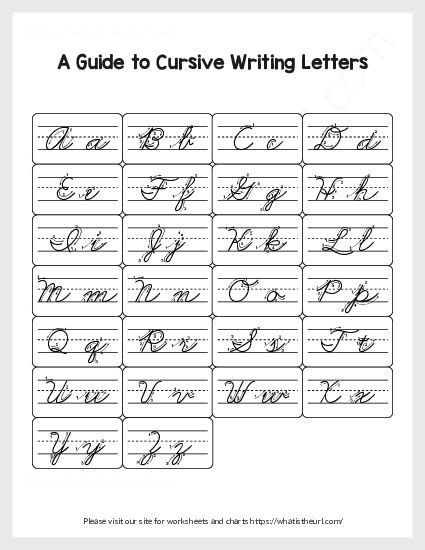 A Guide to Cursive Writing Letters
A a B b C c D d
E e F f G g H h
I i J j K k L l
M m N n O o P p
Q q R r S s T t
U u V v W w X x
Y y Z z
Please visit our site for worksheets and charts https://whatistheurl.com/